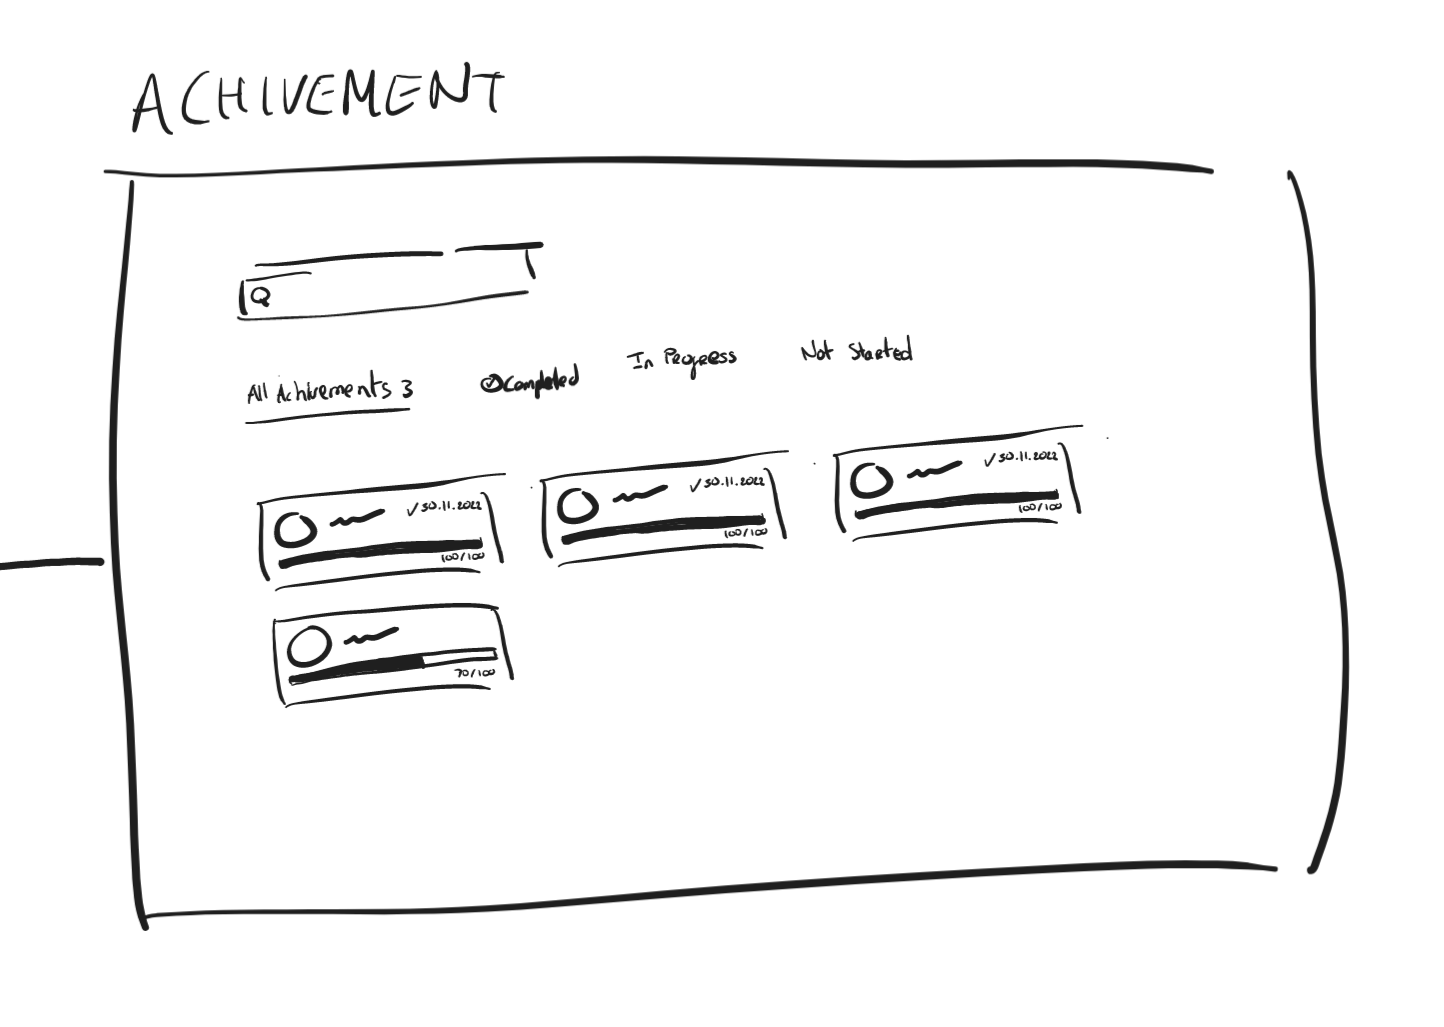 ACHIVEMENT
All Achivements 3
Completed
In Progress
Not Started
✓ 30.11.2022
100/100
✓ 30.11.2022
100/100
✓ 30.11.2022
100/100
70/100